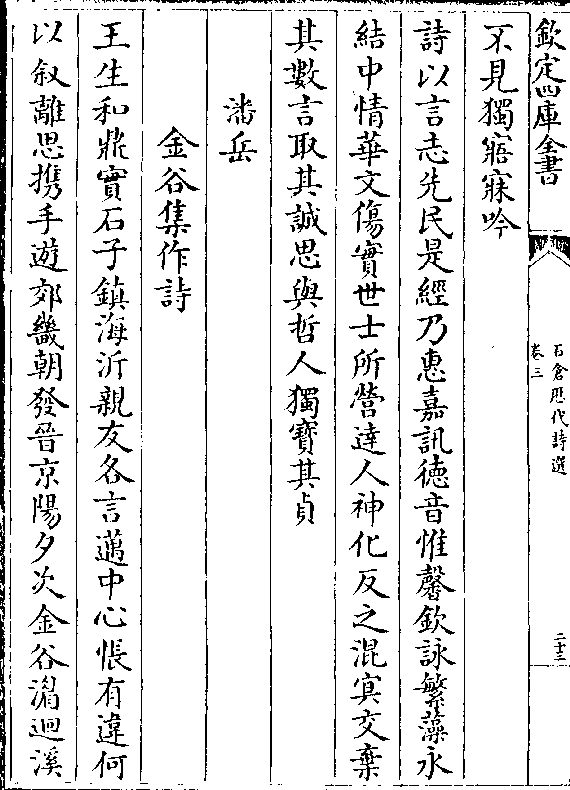 欽定四庫全書
石倉歷代詩選
卷三
二十三
不見獨寤寐吟
詩以言志先民是經乃惠嘉訊德音惟馨欽詠繁藻永
結中情華文傷實世士所營達人神化反之混冥文棄
其數言取其誠思與哲人獨寶其貞
潘岳
金谷集作詩
王生和鼎實石子鎮海沂親友各言邁中心悵有違何
以叙離思携手遊郊畿朝發晉京陽夕次金谷湄迴溪